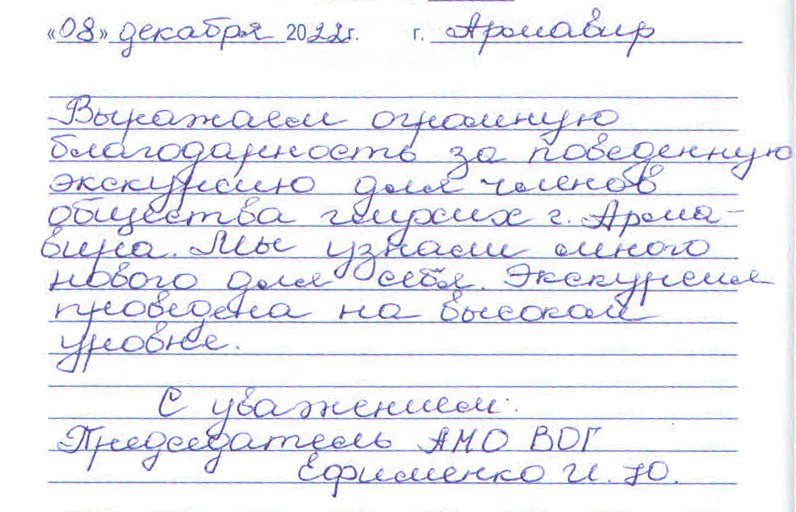 «08» декабря 2022г. г. Армавир
Выражаем огромную
благодарность за поведенную
экскурсию для членов
общества глухих г. Арма-
вира. Мы узнали много
нового для себя. Экскурсия
проведена на высоком
уровне.
С уважением:
Председатель АМО ВОГ
Ефименко И. Ю.